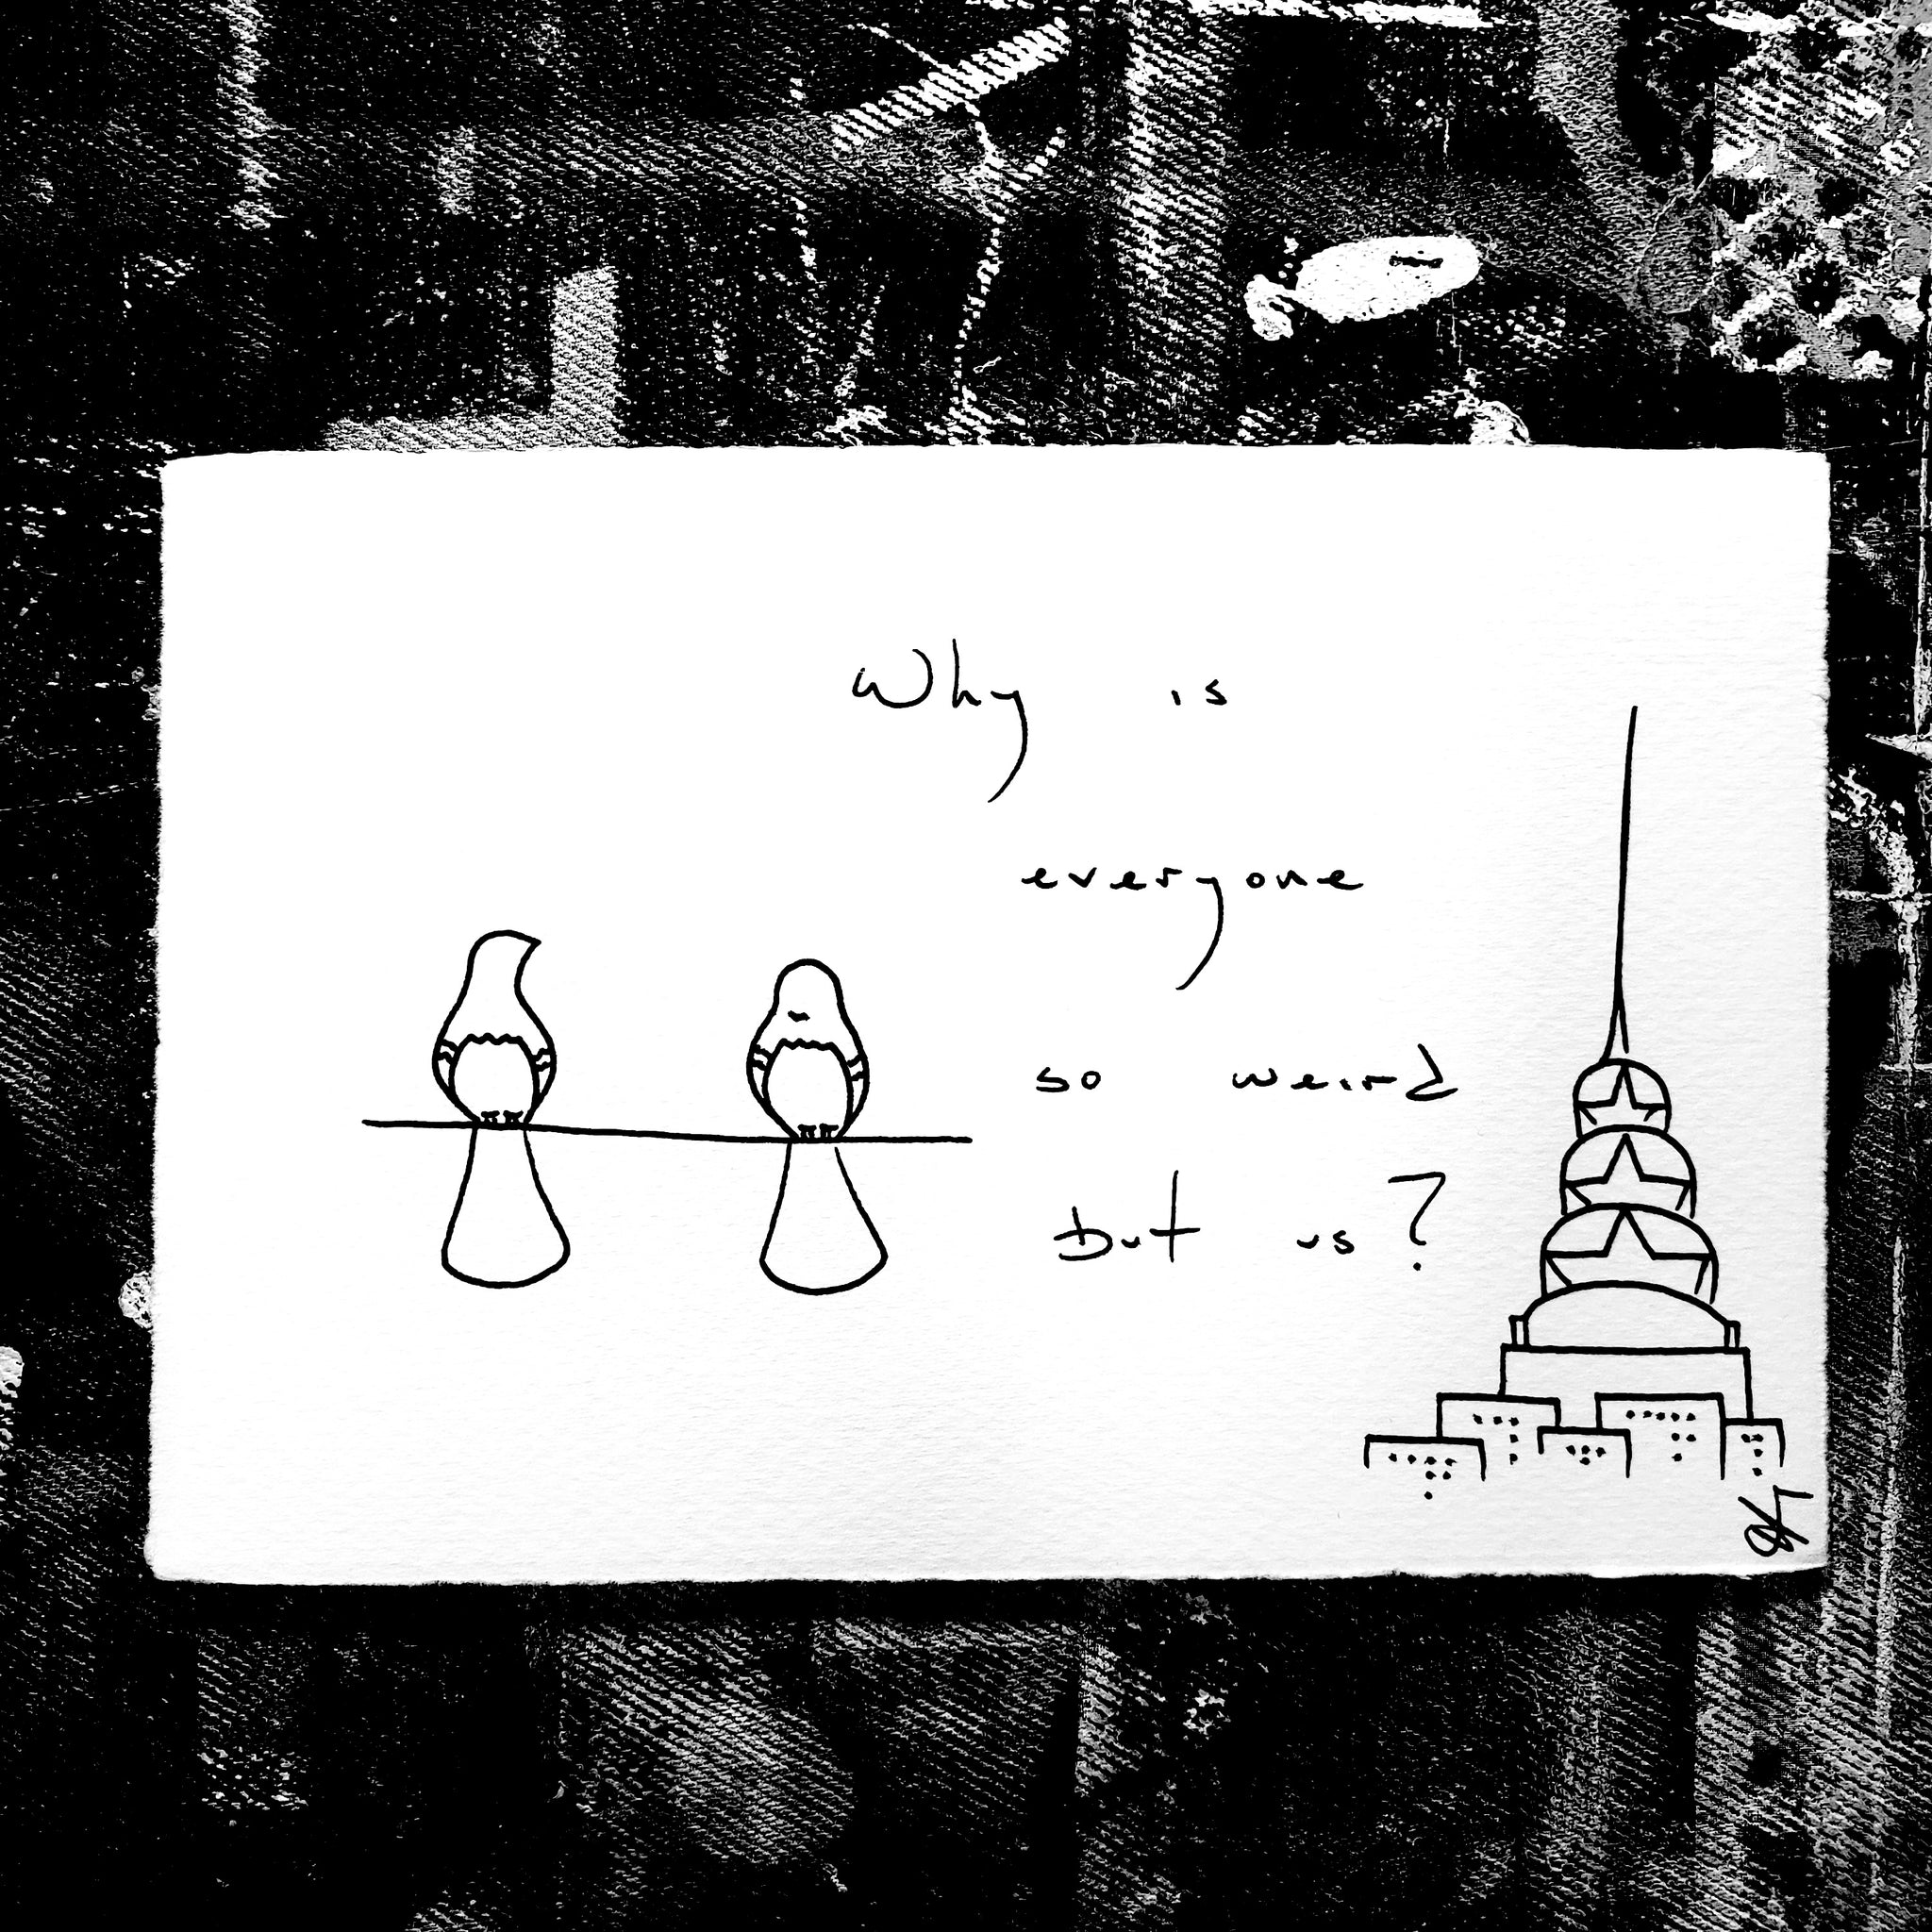 Why is
everyone
so weird
but us?